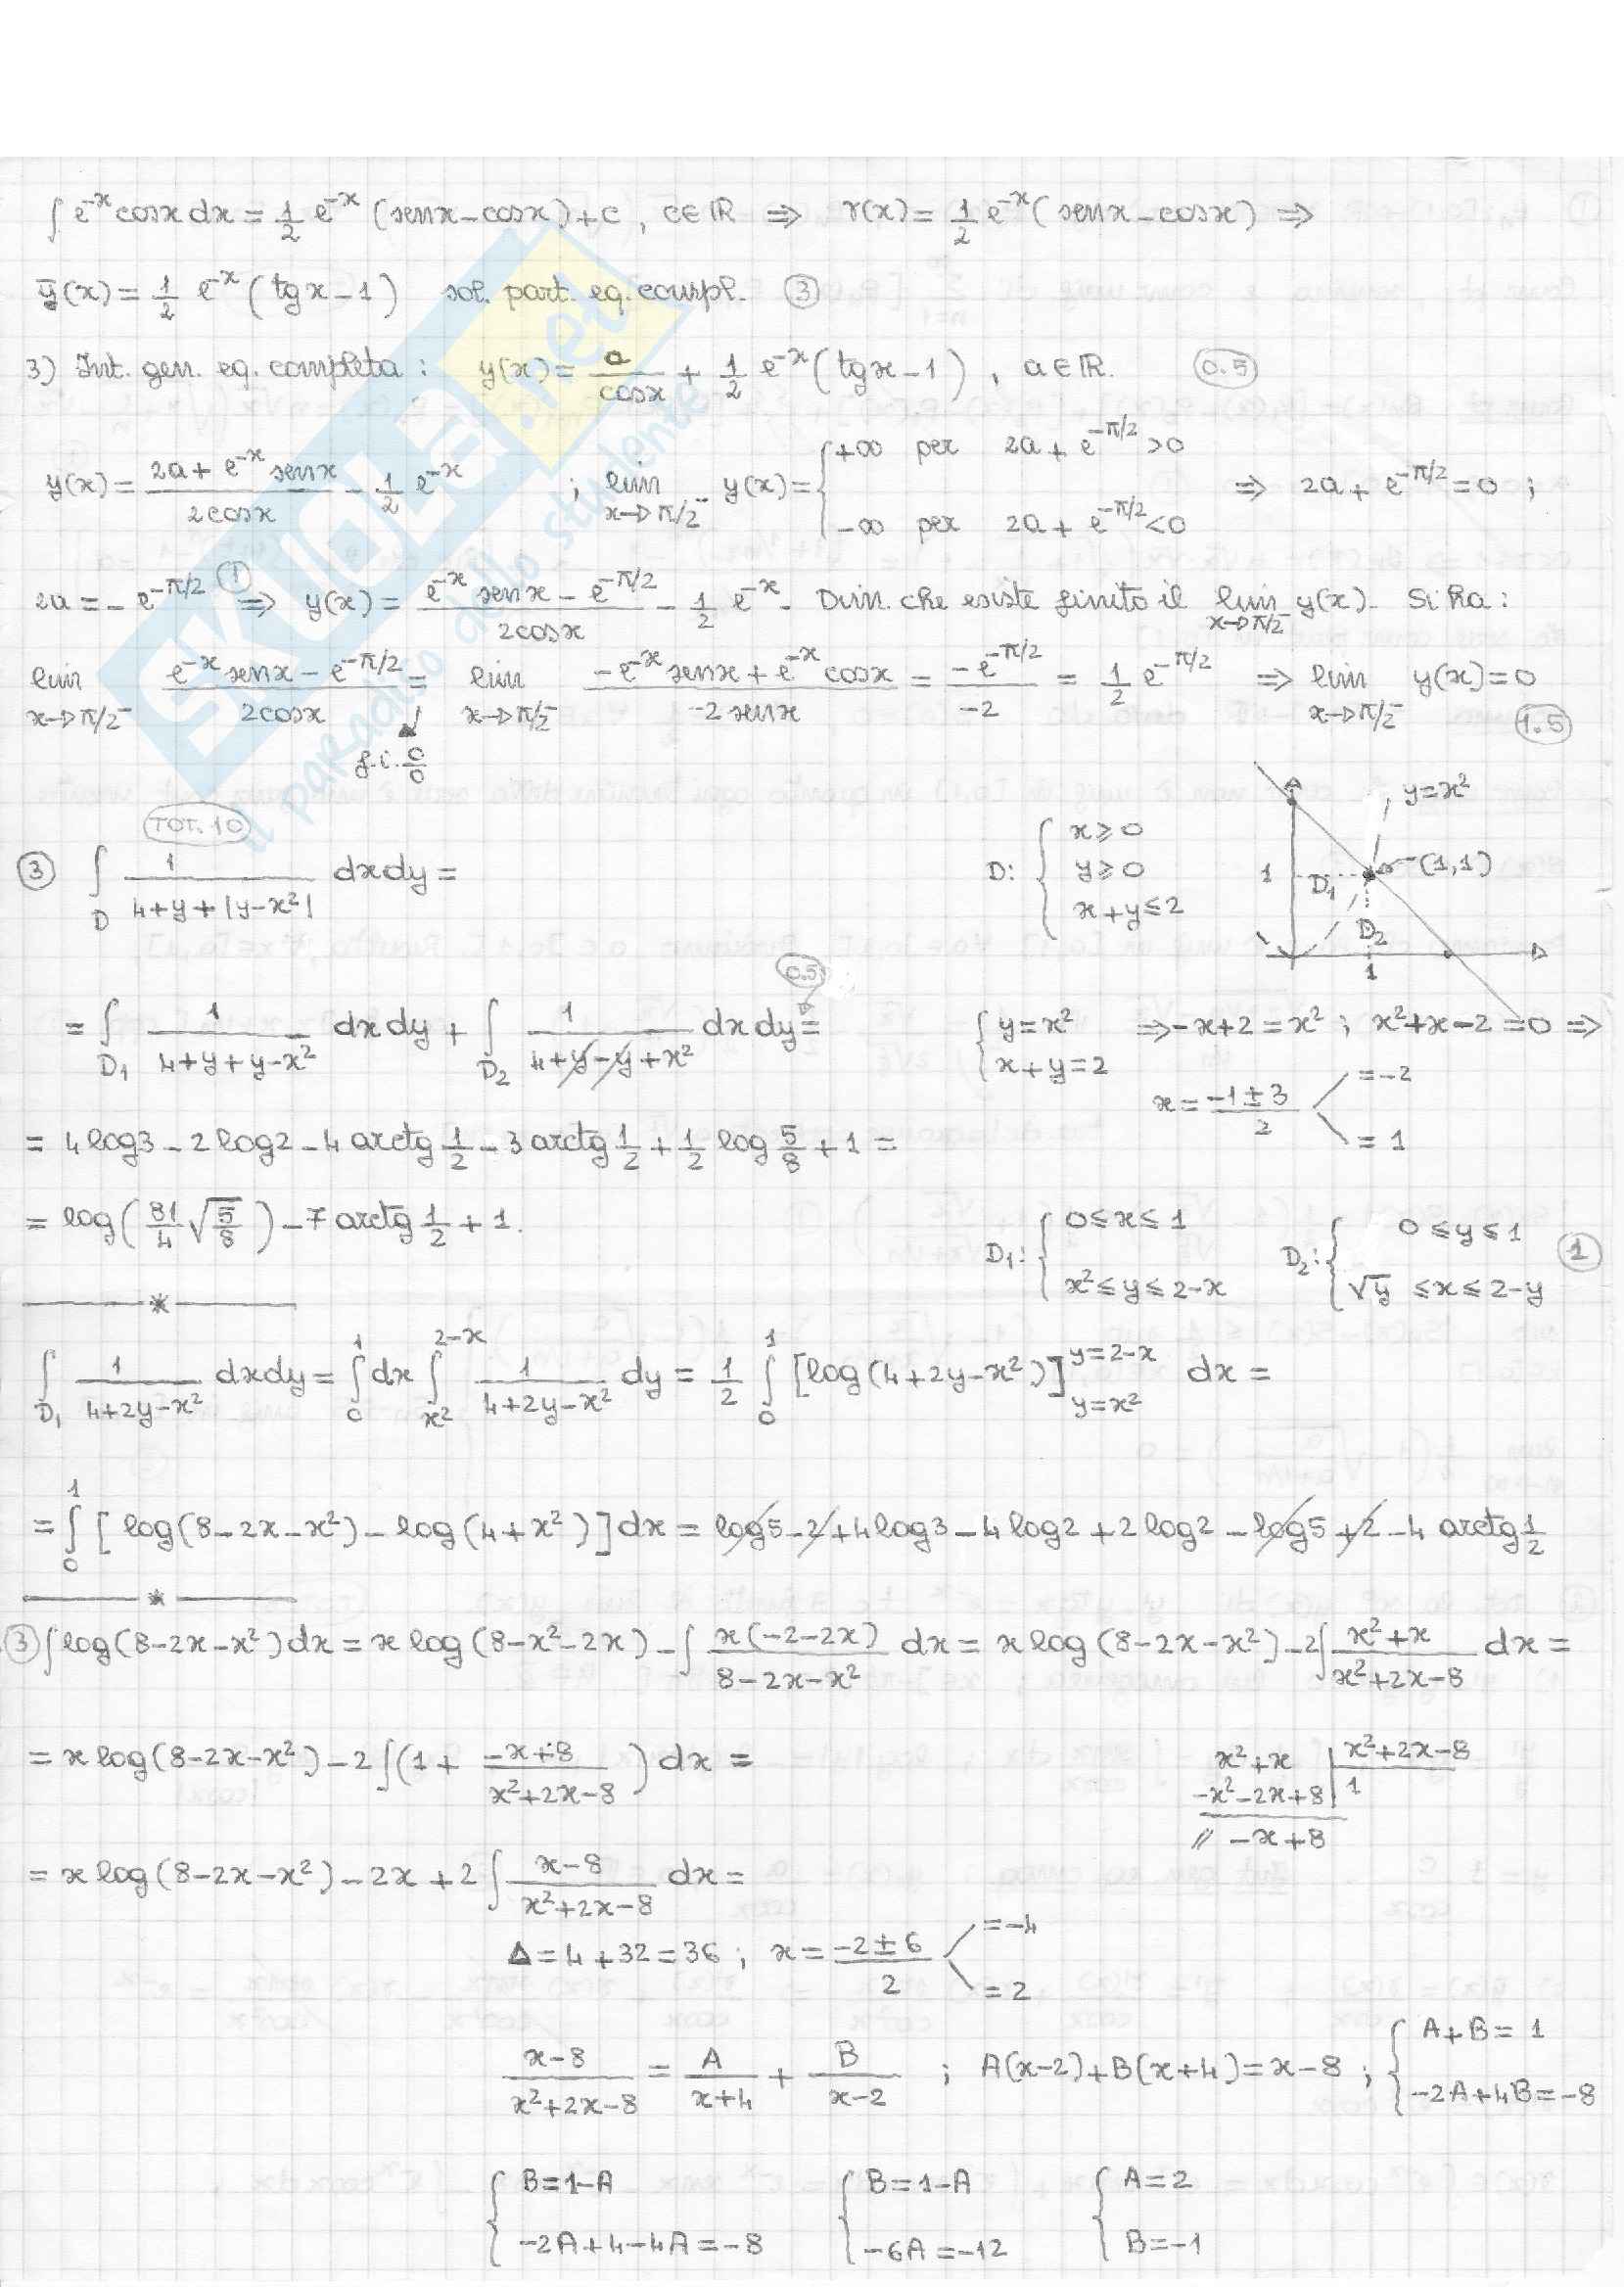 ∫ e^-x cosx dx = 1/2 e^-x (senx - cosx) + c , c∈ℝ ⇒ γ(x) = 1/2 e^-x (senx - cosx) ⇒
ȳ(x) = 1/2 e^-x (tgx - 1) sol. part. eq. compl. ③
3) Int. gen. eq. completa : y(x) = a/cosx + 1/2 e^-x (tgx - 1) , a∈ℝ. (0.5)
y(x) = (2a + e^-x senx)/(2cosx) - 1/2 e^-x ; lim x→π/2^- y(x) = { +∞ per 2a + e^-π/2 > 0
-∞ per 2a + e^-π/2 < 0 ⇒ 2a + e^-π/2 = 0 ;
2a = - e^-π/2 ① ⇒ y(x) = (e^-x senx - e^-π/2)/(2cosx) - 1/2 e^-x. Dim. che esiste finito il lim x→π/2^- y(x). Si ha :
lim x→π/2^- (e^-x senx - e^-π/2)/(2cosx) = lim x→π/2^- (-e^-x senx + e^-x cosx)/(-2senx) = (-e^-π/2)/(-2) = 1/2 e^-π/2 ⇒ lim x→π/2^- y(x) = 0
f.i. 0/0
(1.5)
SKUOLA.net
il paradiso dello studente
(TOT. 10)
③ ∫_D 1/(4+y+|y-x²|) dxdy =
D: { x ≥ 0
y ≥ 0
x+y ≤ 2
y=x²
1 D₁ (1,1)
D₂
1
= ∫_D₁ 1/(4+y+y-x²) dxdy + ∫_D₂ 1/(4+y-y+x²) dxdy = (0.5)
{ y=x²
x+y=2 ⇒ -x+2=x² ; x²+x-2=0 ⇒
x = (-1±3)/2 = -2
= 1
= 4log3 - 2log2 - 4 arctg 1/2 - 3 arctg 1/2 + 1/2 log 5/8 + 1 =
= log(81/4 √(5/8)) - 7 arctg 1/2 + 1.
D₁: { 0≤x≤1
x²≤y≤2-x
D₂: { 0≤y≤1
√y ≤x≤2-y ①
———*———
∫_D₁ 1/(4+2y-x²) dxdy = ∫_0^1 dx ∫_x²^2-x 1/(4+2y-x²) dy = 1/2 ∫_0^1 [log(4+2y-x²)]_y=x²^y=2-x dx =
= ∫_0^1 [log(8-2x-x²) - log(4+x²)] dx = log5 - 2 + 4log3 - 4log2 + 2log2 - log5 + 2 - 4 arctg 1/2
———*———
③ ∫ log(8-2x-x²) dx = x log(8-x²-2x) - ∫ x(-2-2x)/(8-2x-x²) dx = x log(8-2x-x²) - 2∫ (x²+x)/(x²+2x-8) dx =
= x log(8-2x-x²) - 2∫(1 + (-x+8)/(x²+2x-8)) dx =
x²+x | x²+2x-8
-x²-2x+8 | 1
// -x+8
= x log(8-2x-x²) - 2x + 2∫ (x-8)/(x²+2x-8) dx =
Δ = 4+32 = 36 ; x = (-2±6)/2 = -4
= 2
(x-8)/(x²+2x-8) = A/(x+4) + B/(x-2) ; A(x-2)+B(x+4) = x-8 ; { A+B = 1
-2A+4B = -8
{ B=1-A
-2A+4-4A=-8
{ B=1-A
-6A=-12
{ A=2
B=-1